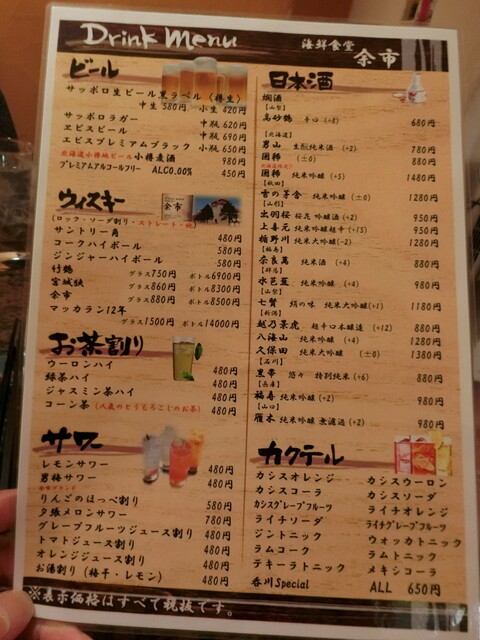 Drink Menu
海鮮食堂 余市
ビール
サッポロ生ビール黒ラベル（樽生）
中生 580円 小生 420円
サッポロラガー 中瓶 620円
ヱビスビール 中瓶 690円
エビスプレミアムブラック 小瓶 650円
北海道小樽地ビール 小樽麦酒 980円
プレミアムアルコールフリー ALC0.00% 450円
ウィスキー
余市
（ロック・ソーダ割り・ストレート・他）
サントリー角 480円
コークハイボール 580円
ジンジャーハイボール 580円
竹鶴 グラス750円 ボトル6900円
宮城狭 グラス860円 ボトル8300円
余市 グラス880円 ボトル8500円
マッカラン12年
グラス1500円 ボトル14000円
お茶割り
ウーロンハイ 480円
緑茶ハイ 480円
ジャスミン茶ハイ 480円
コーン茶（八歳のとうもろこしのお茶） 480円
サワー
レモンサワー 480円
男梅サワー 480円
りんごのほっぺ割り 580円
夕張メロンサワー 780円
グレープフルーツジュース割り 480円
トマトジュース割り 480円
オレンジジュース割り 480円
お湯割り（梅干・レモン） 480円
日本酒
燗酒
【山梨】
高砂鶴 辛口（+8） 680円
【北海道】
男山 生酛純米酒（+2） 780円
國稀 （±0） 880円
國稀 純米吟醸（+5） 1480円
【秋田】
雪の茅舎 純米吟醸（±0） 1280円
【山形】
出羽桜 桜花 吟醸酒（+2） 950円
上喜元 純米吟醸超辛（+15） 950円
楯野川 純米大吟醸（-2） 1280円
【福島】
奈良萬 純米酒（+4） 880円
【群馬】
水芭蕉 純米吟醸（+4） 980円
【山梨】
七賢 絹の味 純米大吟醸（+1） 1180円
【新潟】
越乃景虎 超辛口本醸造（+12） 880円
八海山 純米吟醸（+4） 1280円
久保田 純米大吟醸（±0） 1380円
【石川】
黒帯 悠々 特別純米（+6） 880円
【兵庫】
福寿 純米吟醸（+2） 980円
【山口】
雁木 純米吟醸 無濾過（+2） 980円
カクテル
カシスオレンジ カシスウーロン
カシスコーラ カシスソーダ
カシスグレープフルーツ ライチオレンジ
ライチソーダ ライチグレープフルーツ
ジントニック ウォッカトニック
ラムコーク ラムトニック
テキーラトニック メキシコーラ
呑川Special ALL 650円
※表示価格はすべて税抜です。